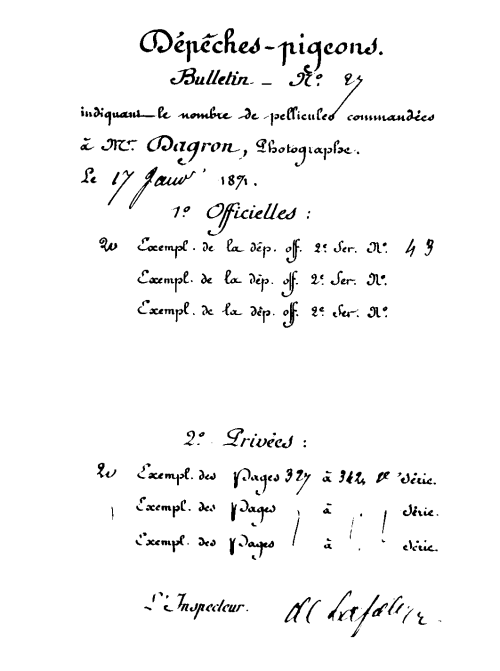 Dépêches-pigeons.
Bulletin _ N° 27
indiquant le nombre de pellicules commandées
à Mr. Dagron, Photographe.
Le 17 Janv 1871.
1° Officielles :
20 Exempl. de la dép. off. 2e Ser. N° 43
Exempl. de la dép. off. 2e Ser. N°.
Exempl. de la dép. off. 2e Ser. N°.
2° Privées :
20 Exempl. des Pages 327 à 342, Série.
Exempl. des Pages à Série.
Exempl. des Pages à Série.
L'Inspecteur.